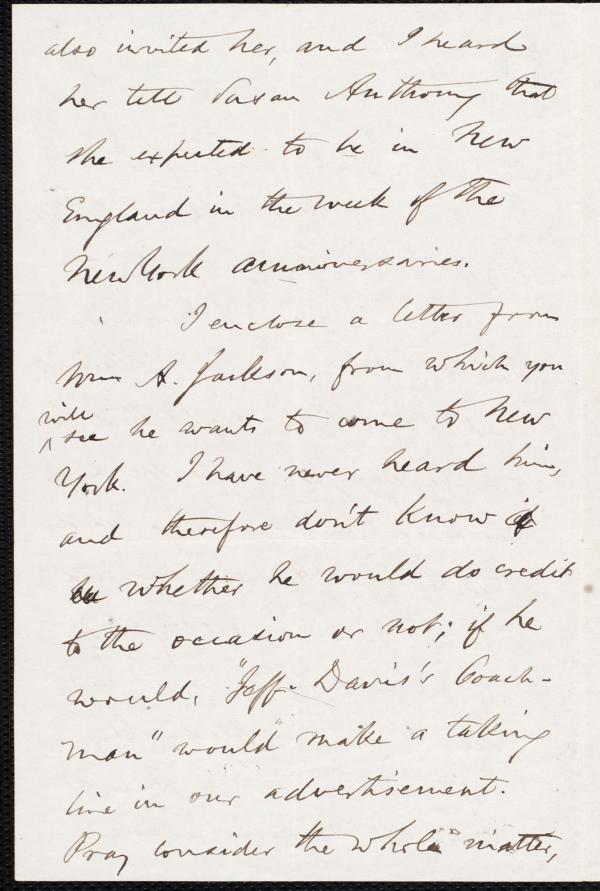 also invited her, and I heard
her tell Susan Anthony that
she expected to be in New
England in the week of the
New York anniversaries.
I enclose a letter from
Wm A. Jackson, from which you
will
see he wants to come to New
York. I have never heard him,
and therefore don't know if
he whether he would do credit
to the occasion or not; if he
would, "Jeff. Davis's Coach-
man" would make a taking
line in our advertisement.
Pray consider the whole matter,